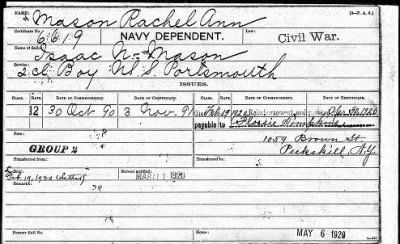 Mason Rachel Ann
(3-F. A. S.)
Certificate No.
6619
NAVY DEPENDENT.
Law:
Civil War.
Name of Sailor:
Isaac N. Mason
Service:
2.cl. Boy U. S. S. Portsmouth
ISSUES.
CLASS. RATE. DATE OF COMMENCEMENT. DATE OF CERTIFICATE. CLASS. RATE. DATE OF COMMENCEMENT. DATE OF CERTIFICATE.
12 30 Oct 90 3 Nov. 91 Feb 19 1920
payable to Flossie
1059 Brown St.
Peekskill, N.Y.
GROUP 2
Transferred from: Transferred to:
Died: Bureau notified:
Feb. 19, 1920 (Letter) MAR 11 1920
Remarks:
Former Roll No. Home:
MAY 6 1920